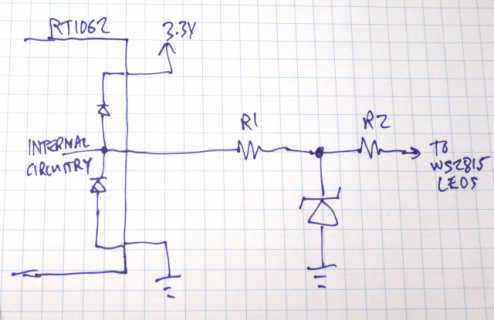 RT1062
3.3V
R1
R2
INTERNAL
CIRCUITRY
TO
WS2815
LEDS